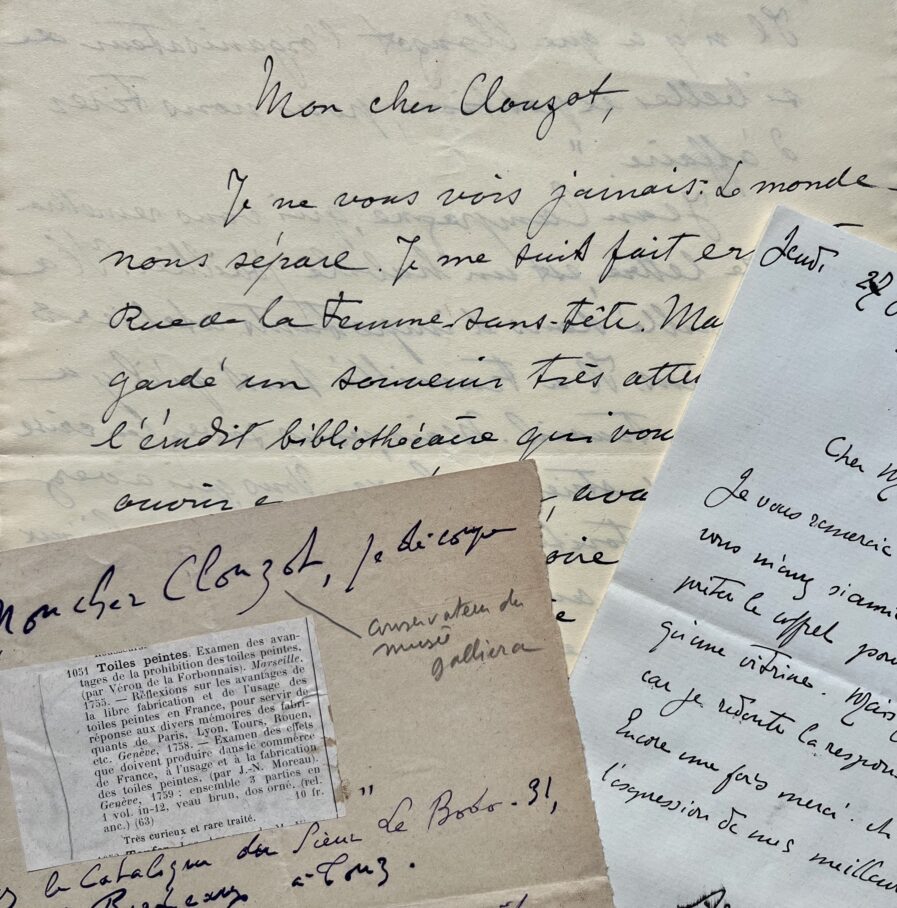 Mon cher Clouzot,
Je ne vous vois jamais. Le monde
nous sépare. Je me suis fait er
Rue de la Femme-sans-Tête. Ma
gardé un souvenir très atten
l'érudit bibliothécaire qui vou
ouvrir
ava
oire
Jeudi
Cher M
Je vous remercie
vous m'avez si aima
prêter le coffret pou
qu'une vitrine. Mais
car je redoute la respon
Encore une fois merci.
l'expression de mes meilleu
Mon cher Clouzot, je découpe
conservateur du
musée
galliera
1051 Toiles peintes. Examen des avan-
tages de la prohibition des toiles peintes.
(par Véron de la Forbonnais). Marseille.
1755. — Réflexions sur les avantages de
la libre fabrication et de l'usage des
toiles peintes en France, pour servir de
réponse aux divers mémoires des fabri-
quants de Paris, Lyon, Tours, Rouen,
etc. Genève, 1758. — Examen des effets
que doivent produire dans le commerce
de France, à l'usage et à la fabrication
des toiles peintes. (par J.-N. Moreau).
Genève, 1759 ; ensemble 3 parties en
1 vol. in-12, veau brun, dos orné. (rel.
anc.) (63) 10 fr.
Très curieux et rare traité.
le Catalogue du Sieur Le Bobo - 31,
à